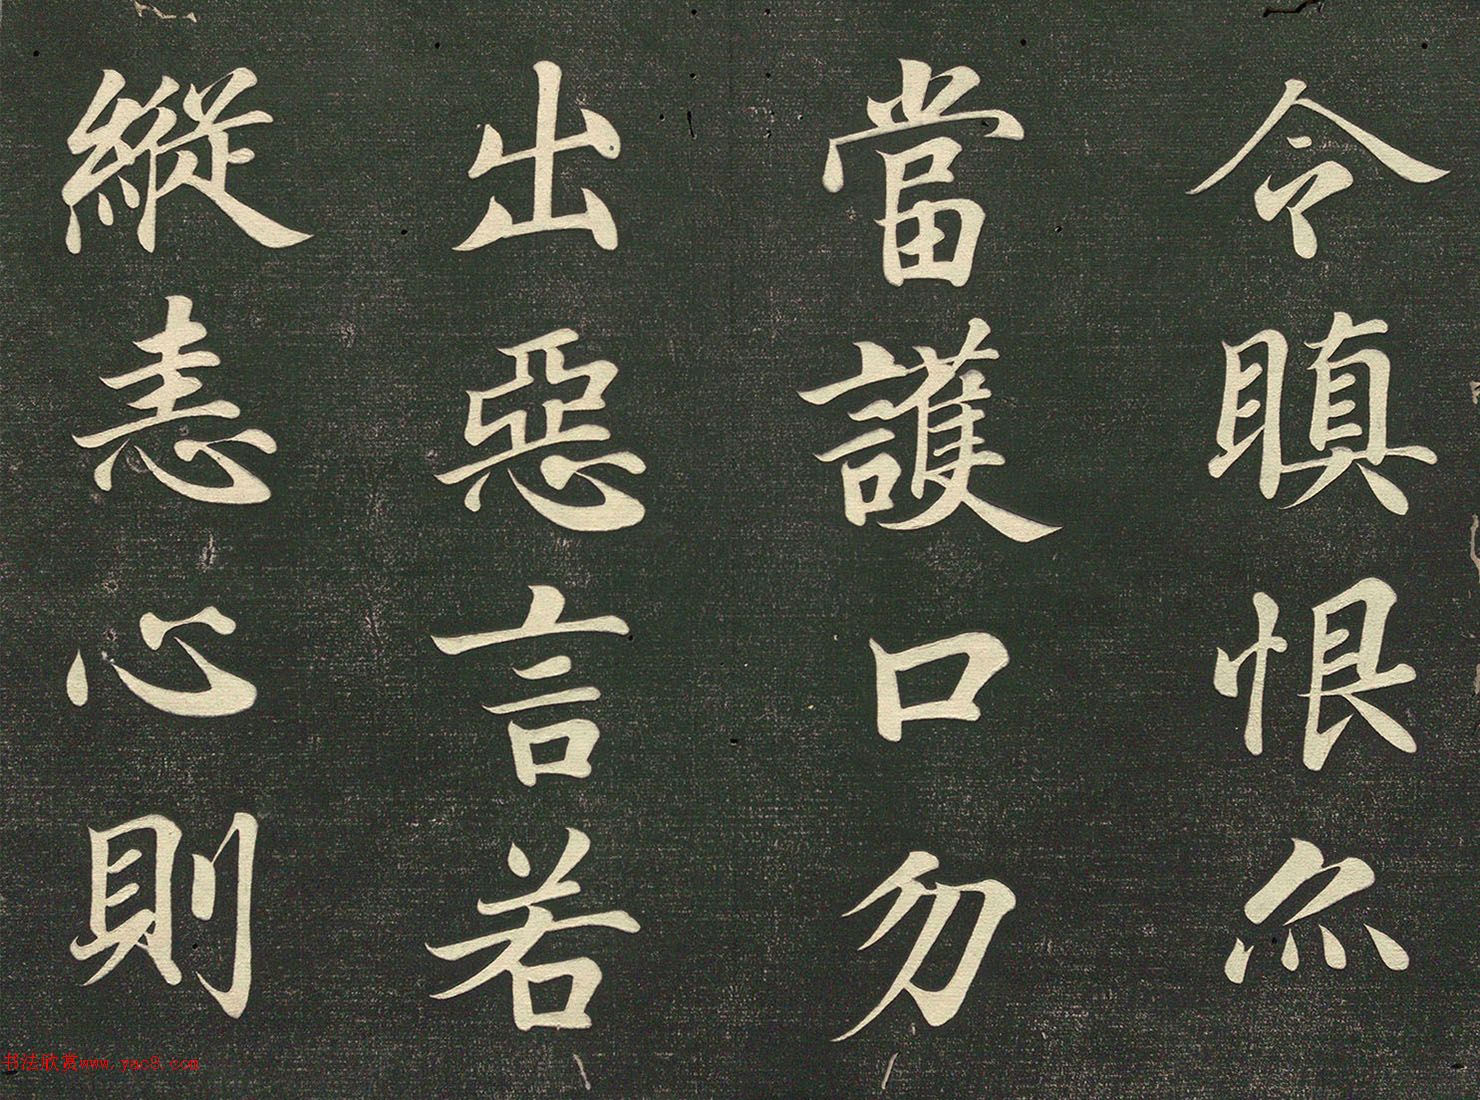 令瞋恨亦
當護口勿
出惡言若
縱恚心則
书法欣赏www.yac8.com